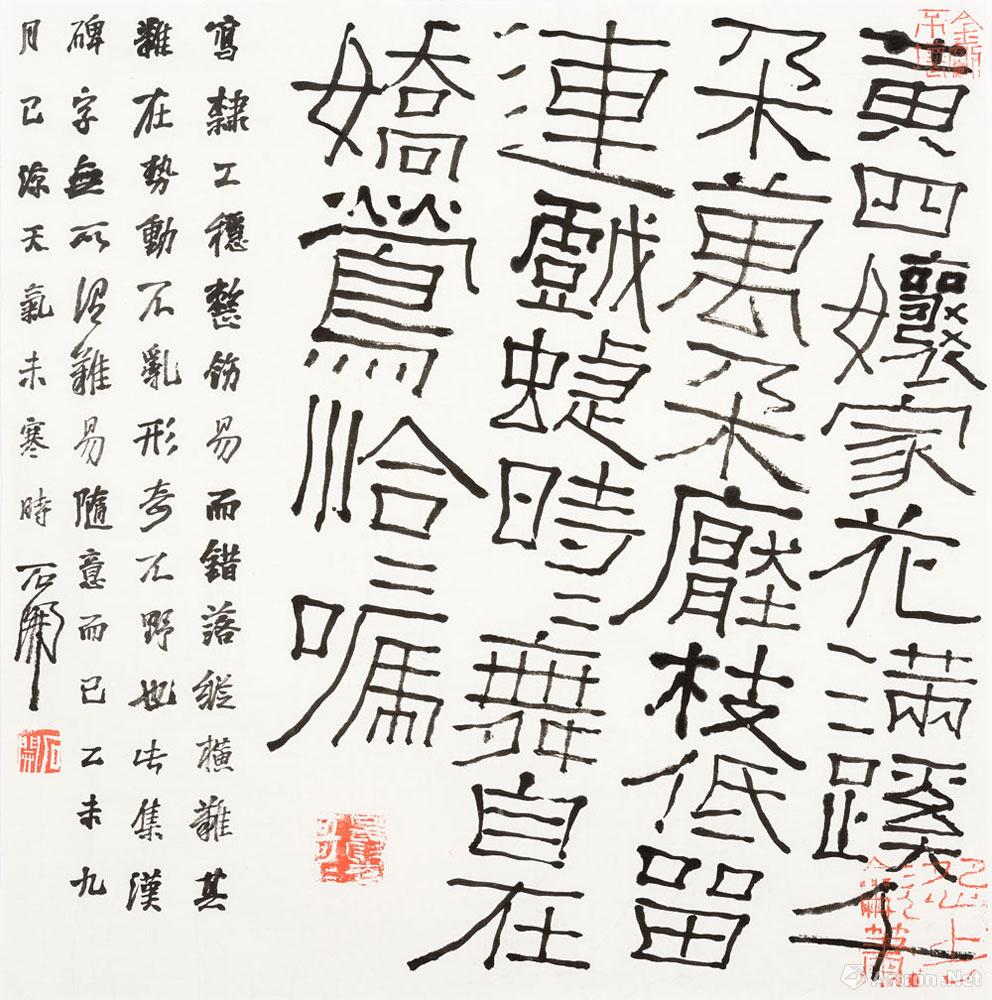 黃四孃家花滿蹊千
朵萬朵壓枝低留
連戲蜨時〻舞自在
嬌鶯恰〻嘱
寫隸工穩整飭易而錯落縱橫難其
難在勢動不亂形奇不野也此集漢
碑字無所謂難易隨意而已乙未九
月已涼天氣未寒時 石開
石開
Artron.Net